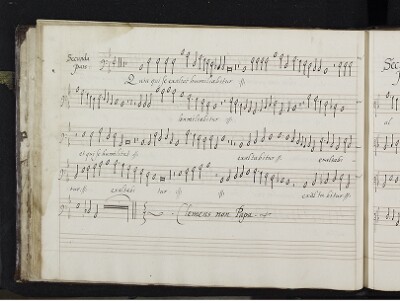 Secunda
pars
Quia qui se exaltat humiliabitur
humiliabitur
et qui se humiliat
exaltabitur
exaltabi
tur
exaltabi
tur
exaltabitur
Clemens non Papa
Sec
al